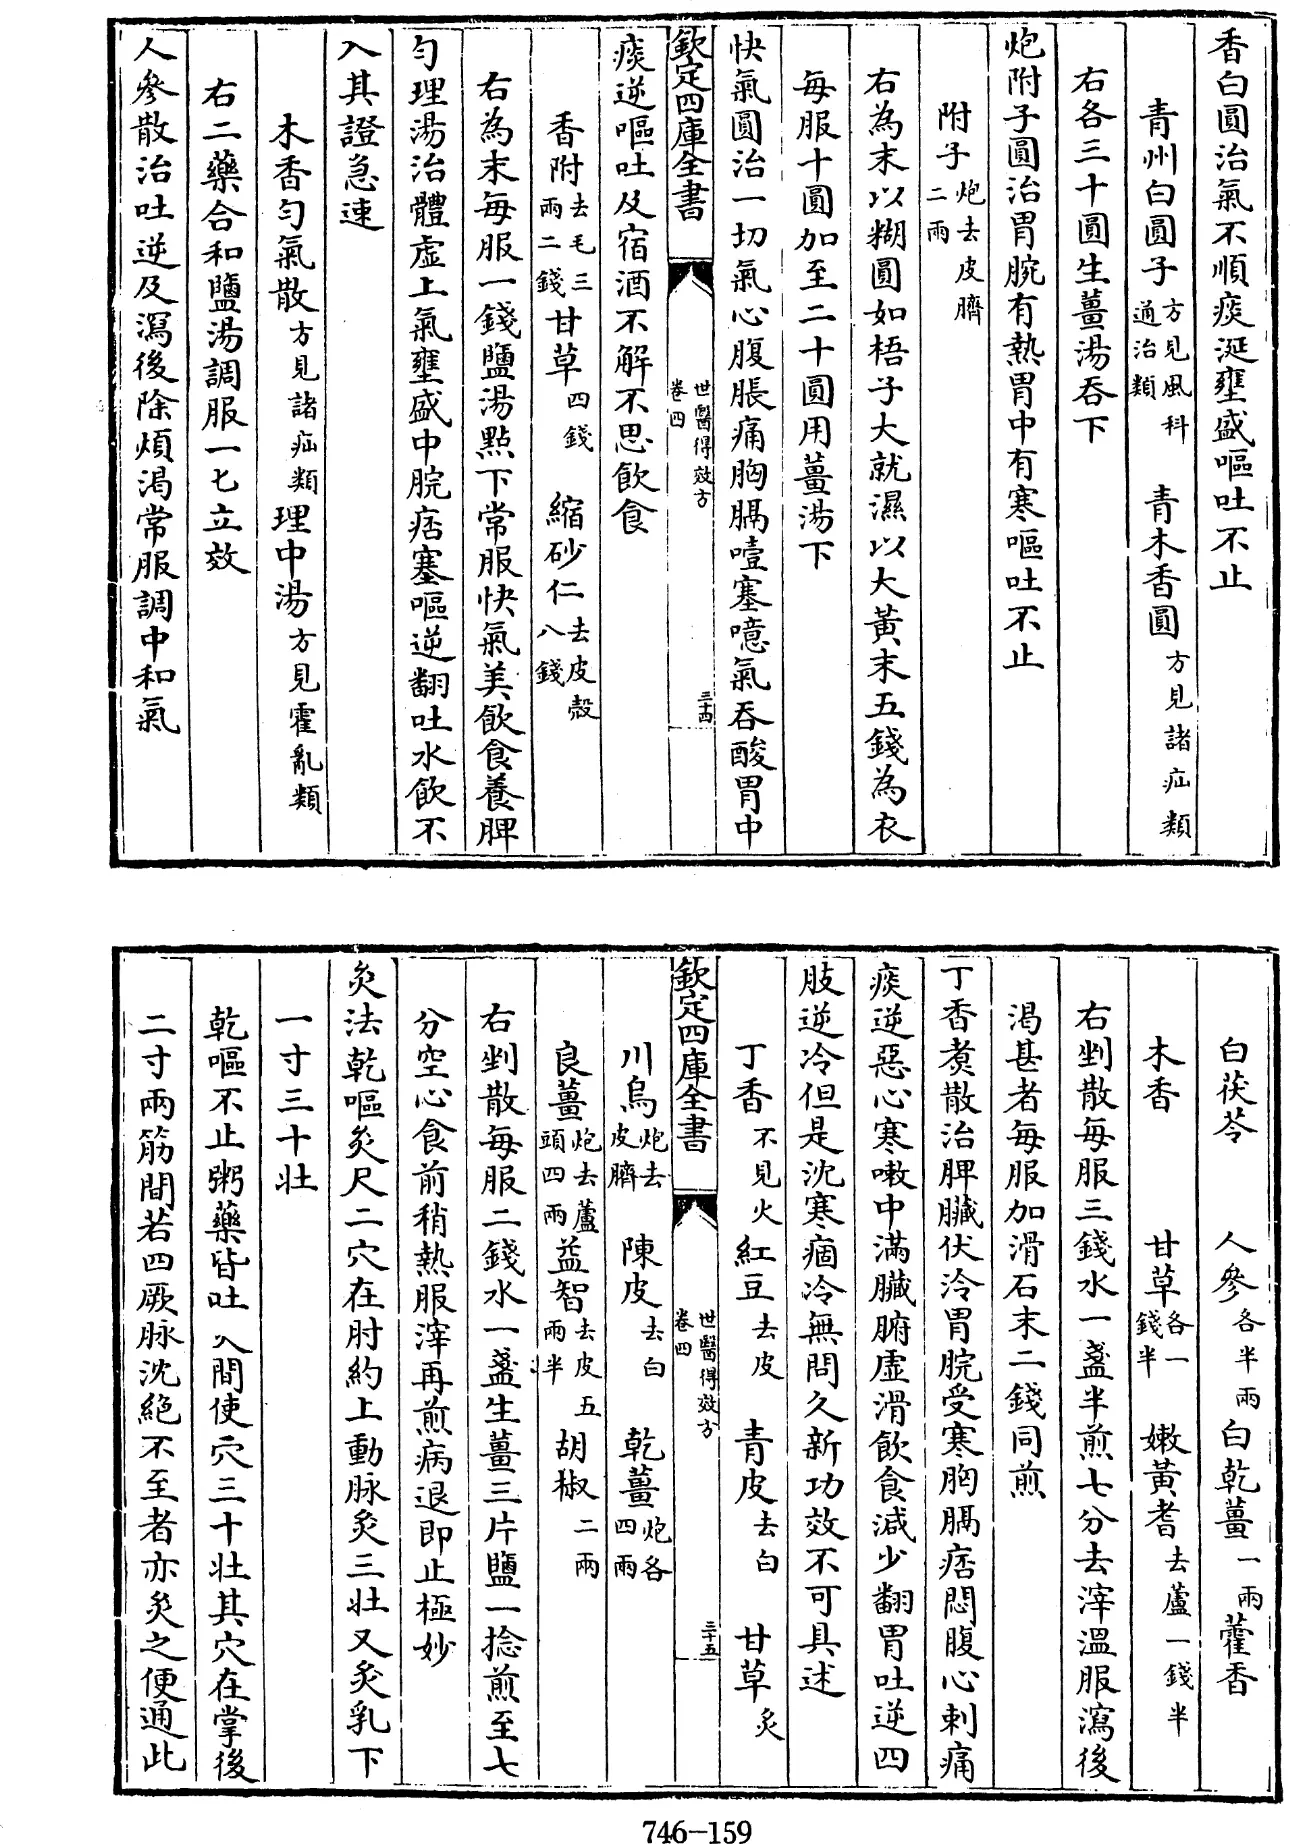 香白圓治氣不順痰涎壅盛嘔吐不止
青州白圓子方見風科通治類 青木香圓方見諸疝類
右各三十圓生薑湯吞下
炮附子圓治胃脘有熱胃中有寒嘔吐不止
附子炮去皮臍二兩
右為末以糊圓如梧子大就濕以大黄末五錢為衣
每服十圓加至二十圓用薑湯下
快氣圓治一切氣心腹脹痛胸膈噎塞噫氣吞酸胃中
欽定四庫全書
世醫得效方
卷四
三十四
痰逆嘔吐及宿酒不解不思飲食
香附去毛三兩二錢甘草四錢 縮砂仁去皮殼八錢
右為末每服一錢鹽湯點下常服快氣美飲食養脾
勻理湯治體虛上氣壅盛中脘痞塞嘔逆翻吐水飲不
入其證急速
木香勻氣散方見諸疝類理中湯方見霍亂類
右二藥合和鹽湯調服一七立效
人參散治吐逆及瀉後除煩渴常服調中和氣
白茯苓 人參各半兩白乾薑一兩藿香
木香 甘草各一錢半 嫩黃耆去蘆一錢半
右剉散每服三錢水一盞半煎七分去滓溫服瀉後
渴甚者每服加滑石末二錢同煎
丁香煑散治脾臟伏泠胃脘受寒胸膈痞悶腹心刺痛
痰逆惡心寒嗽中滿臟腑虛滑飲食減少翻胃吐逆四
肢逆冷但是沈寒痼冷無問久新功效不可具述
丁香不見火紅豆去皮 青皮去白 甘草炙
欽定四庫全書
世醫得效方
卷四
三十五
川烏炮去皮臍 陳皮去白 乾薑炮各四兩
良薑炮去蘆頭四兩益智去皮五兩半 胡椒二兩
右剉散每服二錢水一盞生薑三片鹽一捻煎至七
分空心食前稍熱服滓再煎病退即止極妙
灸法乾嘔灸尺二穴在肘約上動脉灸三壯又灸乳下
一寸三十壯
乾嘔不止粥藥皆吐灸間使穴三十壯其穴在掌後
二寸兩筋間若四厥脉沈絶不至者亦灸之便通此
746-159